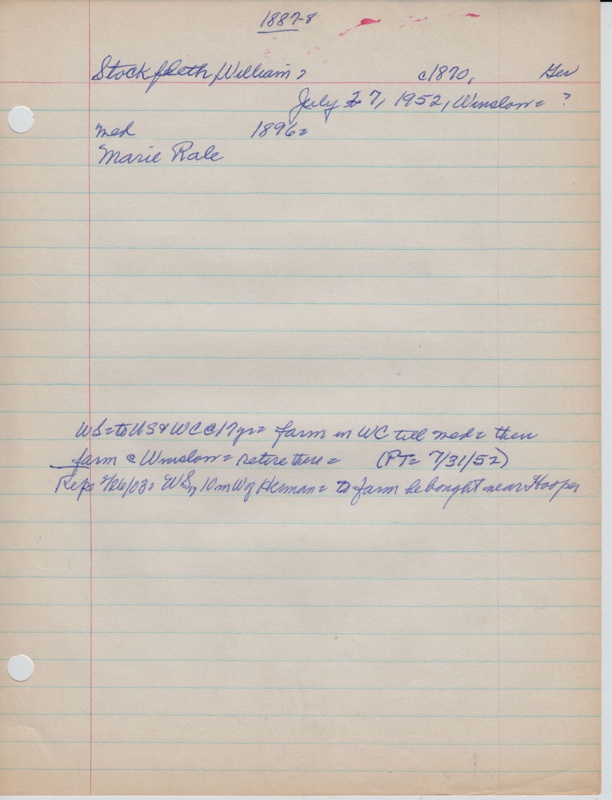 1887-8
Stockfleth, William = c1870, Ger
July 27, 1952, Winslow = ?
med 1896 =
Marie Rale
WS = to US & WC @ 17 yr = farm in WC till med = then
farm @ Winslow = retire there = (PT = 7/31/52)
Rep = /26/03 = WS, 10 m W of Herman = to farm he bought near Hooper